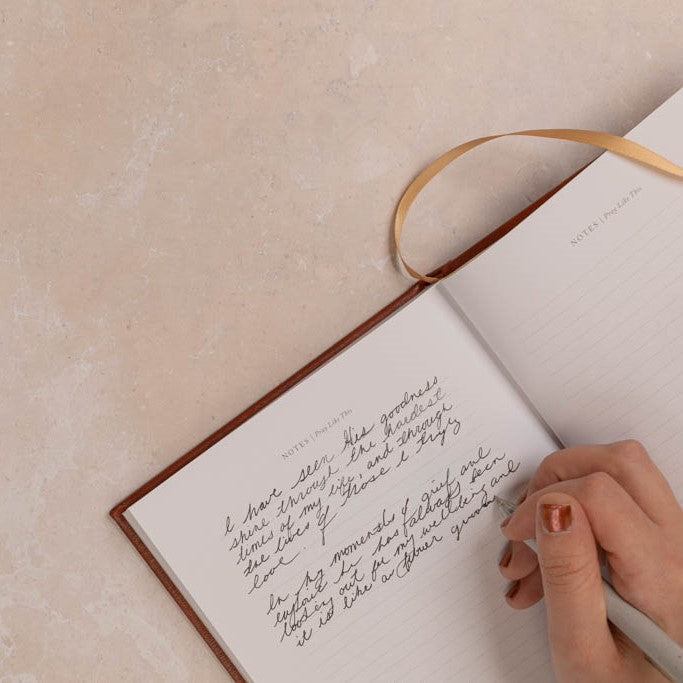 NOTES | Pray Like This
I have seen His goodness
shine through the hardest
times of my life, and through
the lives of those I truly
love.
In my moments of grief and
he has always been
out for my wellbeing and
it is like a
NOTES | Pray Like This